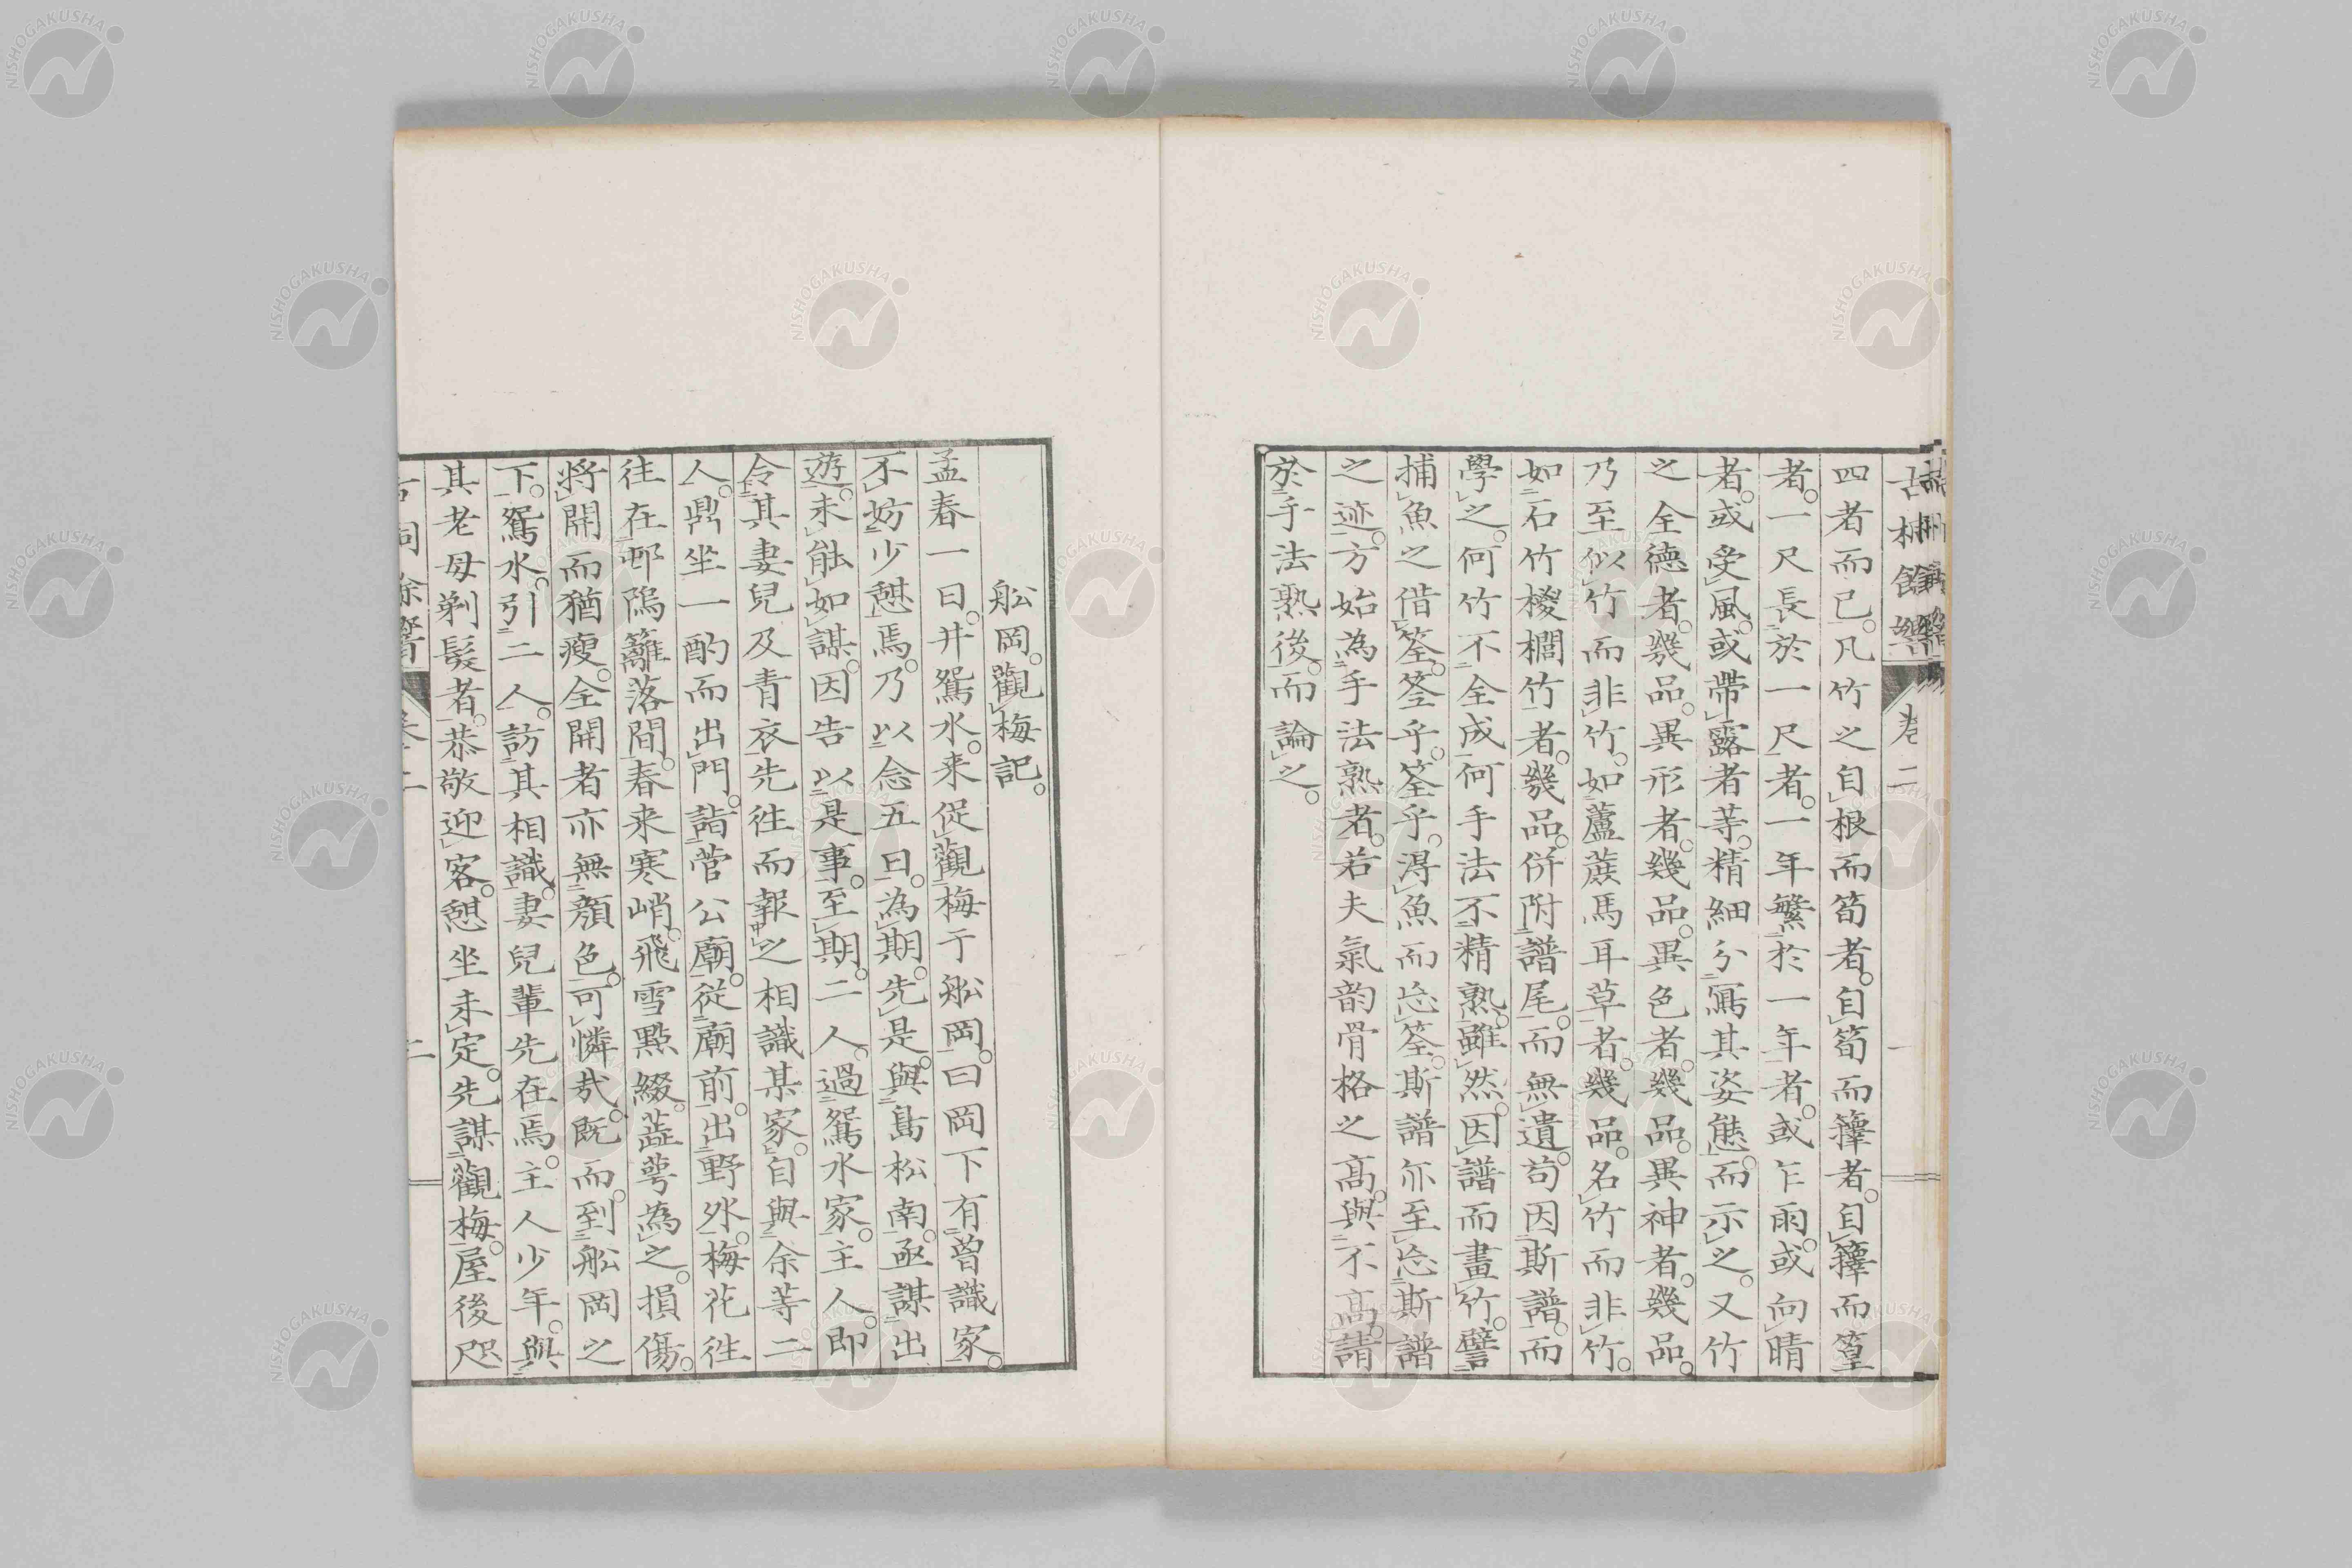 四者而已。凡竹之自根而筍者。自筍而籜者。自籜而篁
者。一尺長於一尺者。一年繁於一年者。或乍雨。或向晴
者。或受風。或帶露者等。精細分寫其姿態。而示之。又竹
之全德者。幾品。異形者。幾品。異色者。幾品。異神者。幾品。
乃至似竹而非竹。如蘆蔗馬耳草者。幾品。名竹而非竹。
如石竹椶櫚竹者。幾品。併附譜尾。而無遺。苟因斯譜。而
學之。何竹不全成。何手法不精熟。雖然。因譜而畫竹。譬
捕魚之借筌。筌乎。筌乎。得魚而忘筌。斯譜亦至忘斯譜
之迹。方始為手法熟者。若夫氣韵骨格之高。與不高。請
於手法熟後。而論之。
舩岡。觀梅記。
孟春一日。井鴛水。来促觀梅于舩岡。曰岡下有曽識家。
不妨少憩焉。乃以念五日。為期。先是。與島松南。亟謀出
遊。未能如謀。因告以是事。至期。二人。過鴛水家。主人。即
令其妻兒及青衣先徃而報之相識某家。自與余等二
人。鼎坐一酌而出門。詣菅公廟。從廟前。出野外。梅花徃
往在邨隖籬落間。春来寒峭。飛雪點綴。蕋萼為之。損傷。
將開而猶瘦。全開者亦無顏色。可憐哉。既而。到舩岡之
下。鴛水。引二人。訪其相識。妻兒輩先在焉。主人少年。與
其老母剃髮者。恭敬迎客。憩坐未定。先謀觀梅。屋後咫
巻二
一
二
NISHOGAKUSHA